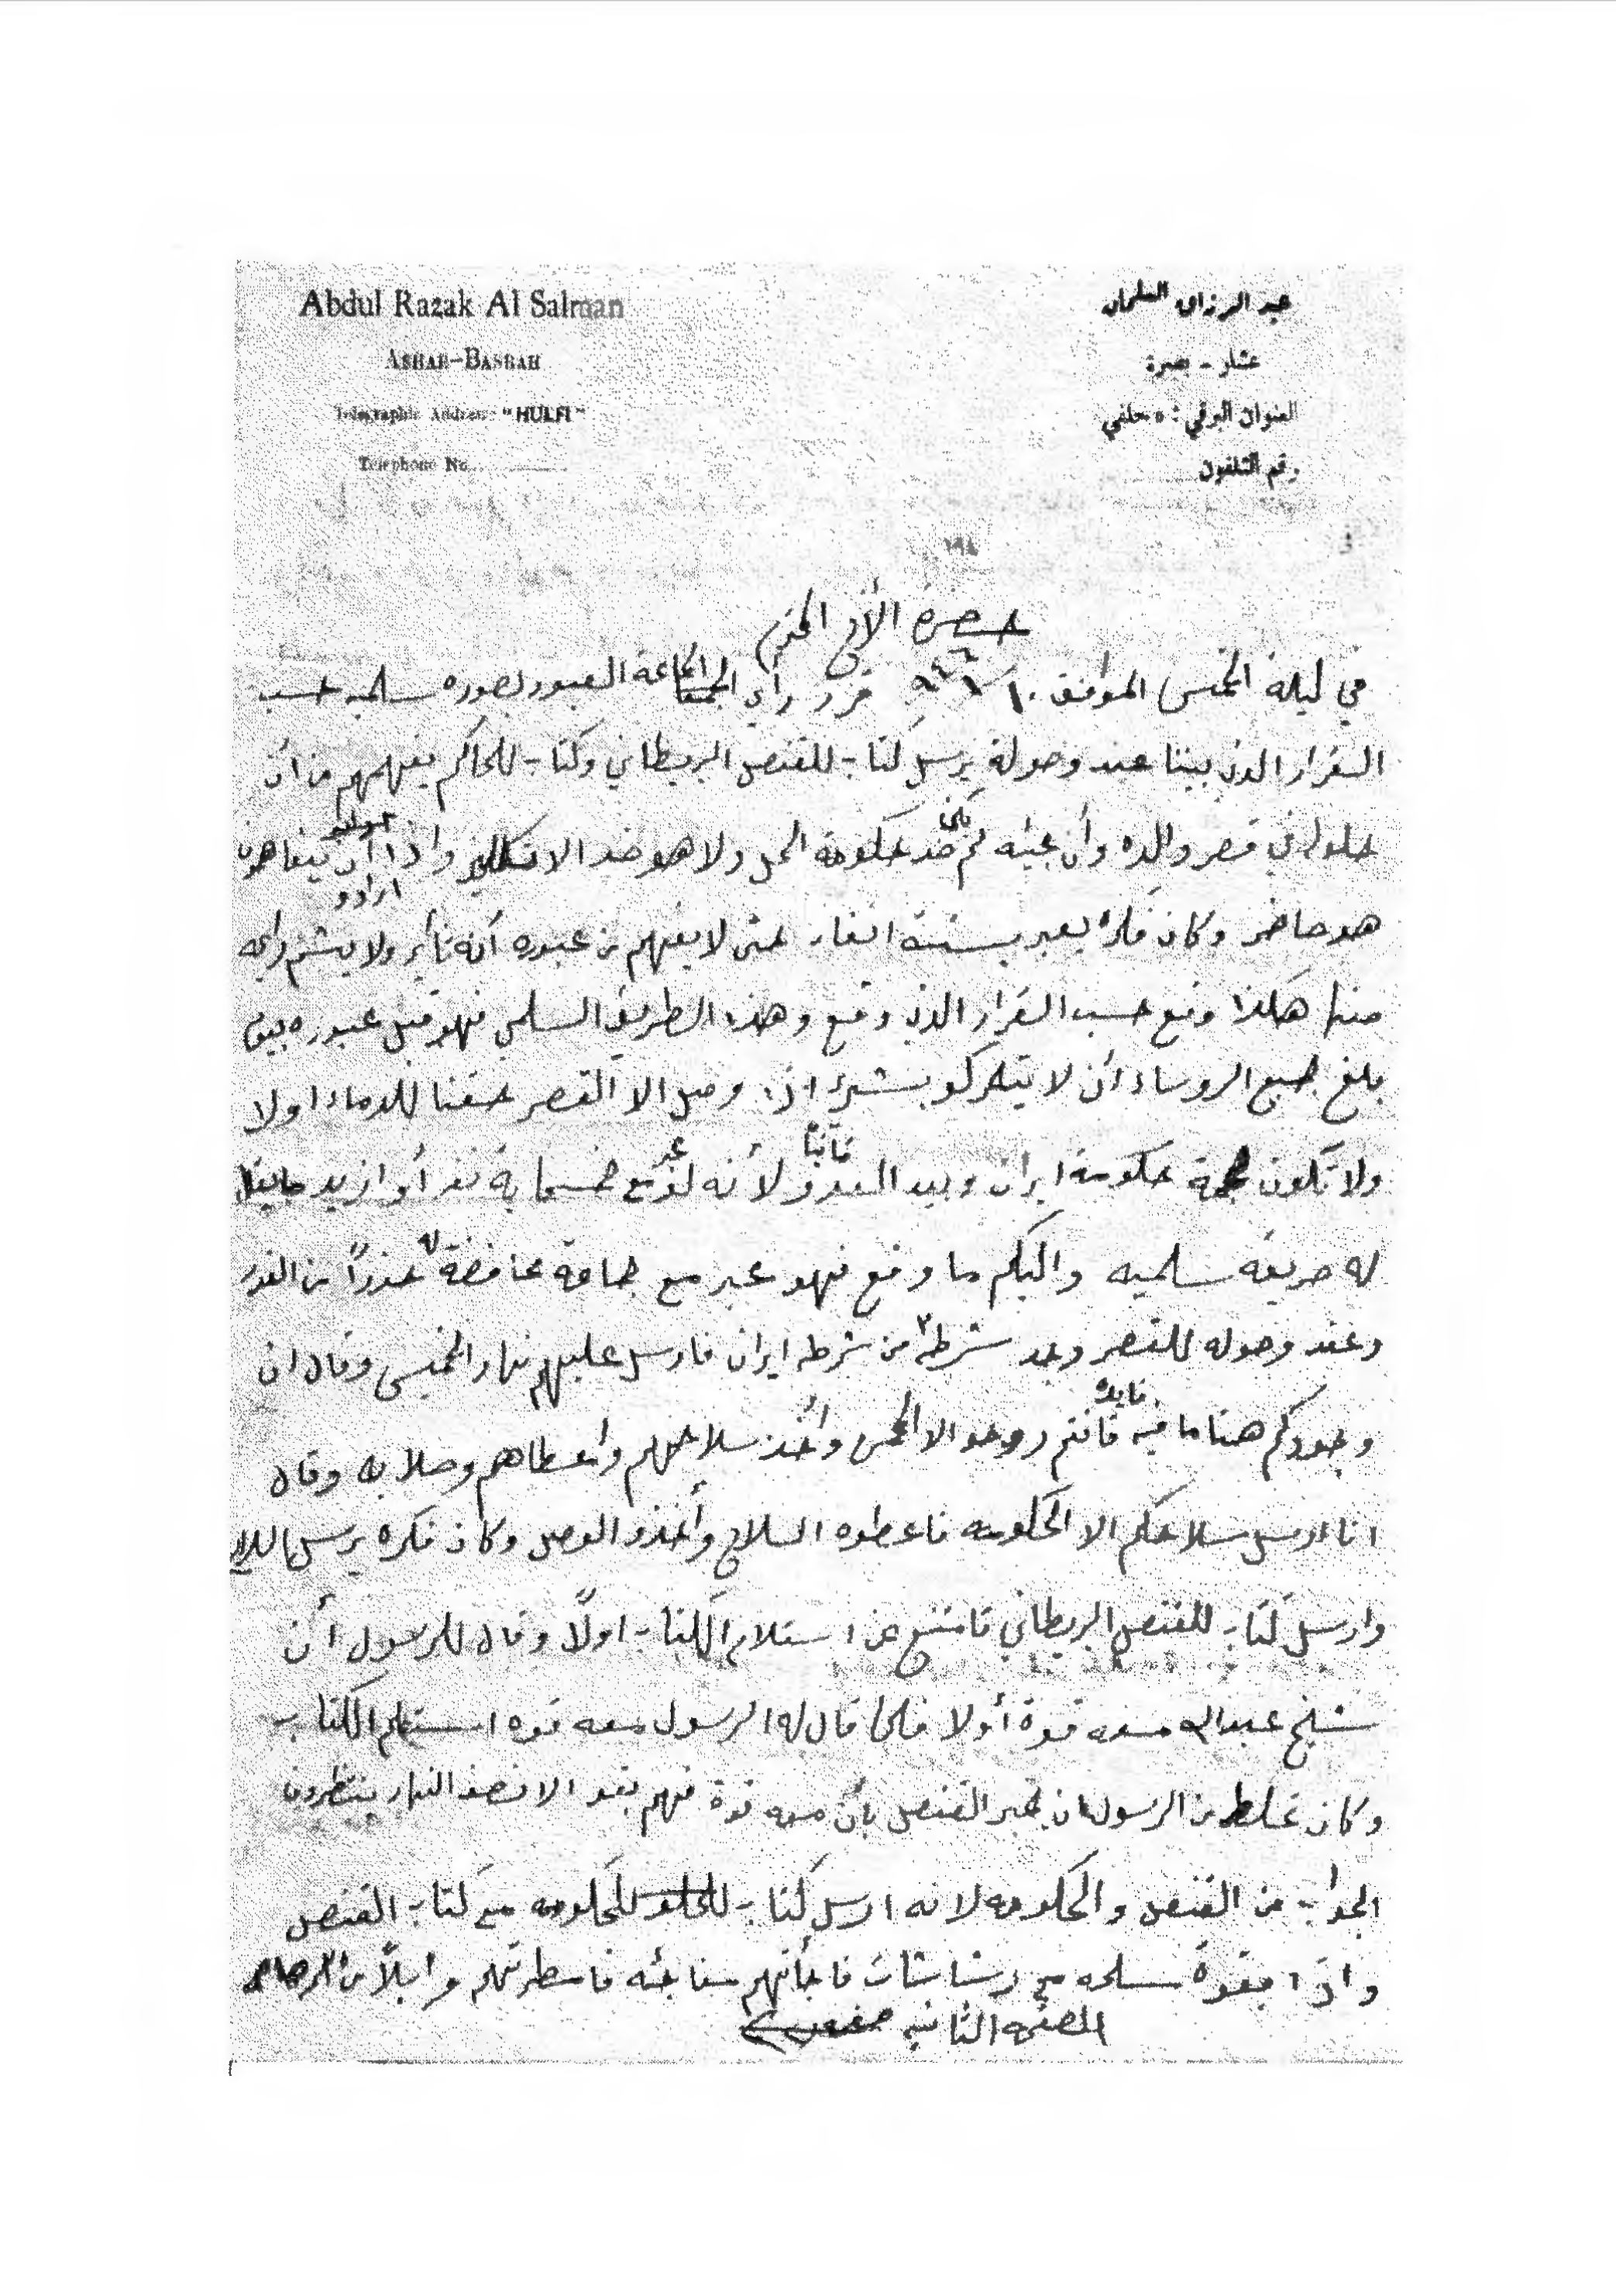 Abdul Razak Al Salman
ASHAR-BASRAH
Telegraphic Address: "HULFI"
Telephone No.
عبد الرزاق السلمان
عشار - بصرة
العنوان البرقي: حلفي
رقم التلفون
١٩٤
حضرة الأخ المحترم
في ليلة الخميس الموافق ١٠ قرر رأي الجماعة العبور بصوره سلميه حسب
القرار الذي بيننا عند وصوله يرسل كتاب للقنصل البريطاني وكتاب للحاكم يفهمهم من أن
حلوله في قصر والده وأن مجيئه لم يكن ضد حكومة المحل ولا هو ضد الانكليز واذا ارادو يتفاهمون
هو حاضر وكان فكره يعبر بستة انفار حتى لا يفهم من عبوره أنه ثائر ولا يشتم رايحه
منها هكذا وقع حسب القرار الذي وقع وهذه الطريق السلمي فهو قبل عبوره بيوم
بلغ جميع الروساء أن لا يتحركو بشيء اذا وصل الا القصر حقنا للدماء اولا
ولا تكون حجة حكومة ايران وبيد العدو ثانياً لأنه لو عبر مع خمسماية نفر أو ازيد ما يقال
له طريقه سلميه واليكم ما وقع فهو عبر مع جماعة محافضة له حذراً من الغدر
وعند وصوله للقصر وجد شرطه ٢ من شرطه ايران فارسل عليهم نهار الخميس وقال ان
وجودكم هنا ما فيه فايده فانتم روحو الا المحل وأخذ سلاحهم واعطاهم وصلا به وقال
انا ارسل سلاحكم الا الحكومه فاعطوه السلاح وأخذو الوصل وكان فكره يرسلها
وارسل كتاب للقنصل البريطاني فامتنع عن استلام الكتاب اولاً وقال للرسول أن
شيخ عبدالله معه قوة أولا فلما قال له الرسول معه قوه استلم الكتاب
وكان غلط من الرسول ان يخبر القنصل بأن معه قوة فهم بقو الا نصف النهار ينتظرون
الجواب من القنصل والحكومه لانه ارسل كتاب للحكومه مع كتاب القنصل
واذا بقوة مسلحه مع رشاشات فاجأتهم مفاجئه فامطرتهم وابلاً من الرصاص
الصفحه الثانيه